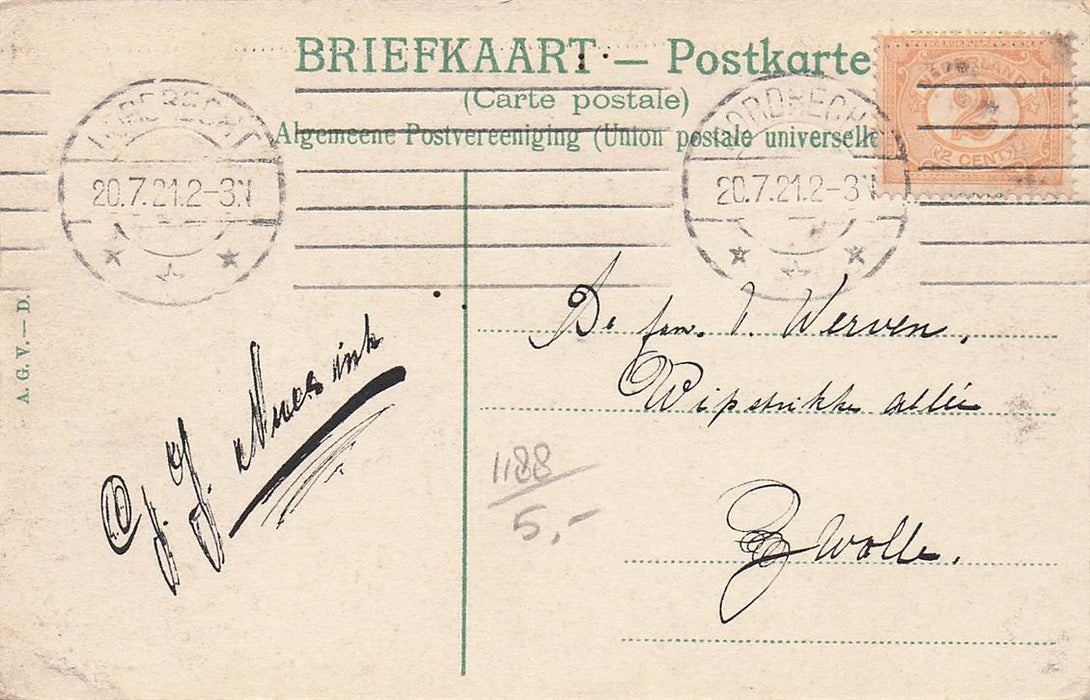 BRIEFKAART — Postkarte
(Carte postale)
Algemeene Postvereeniging (Union postale universelle
NEDERLAND
2
2 CENT
DORDRECHT
20.7.21.2-3N
DORDRECHT
20.7.21.2-3N
A. G. V. — D.
De fam. V. Werven,
Wipstrikke allée
Zwolle.
J. J.
1188
5,-